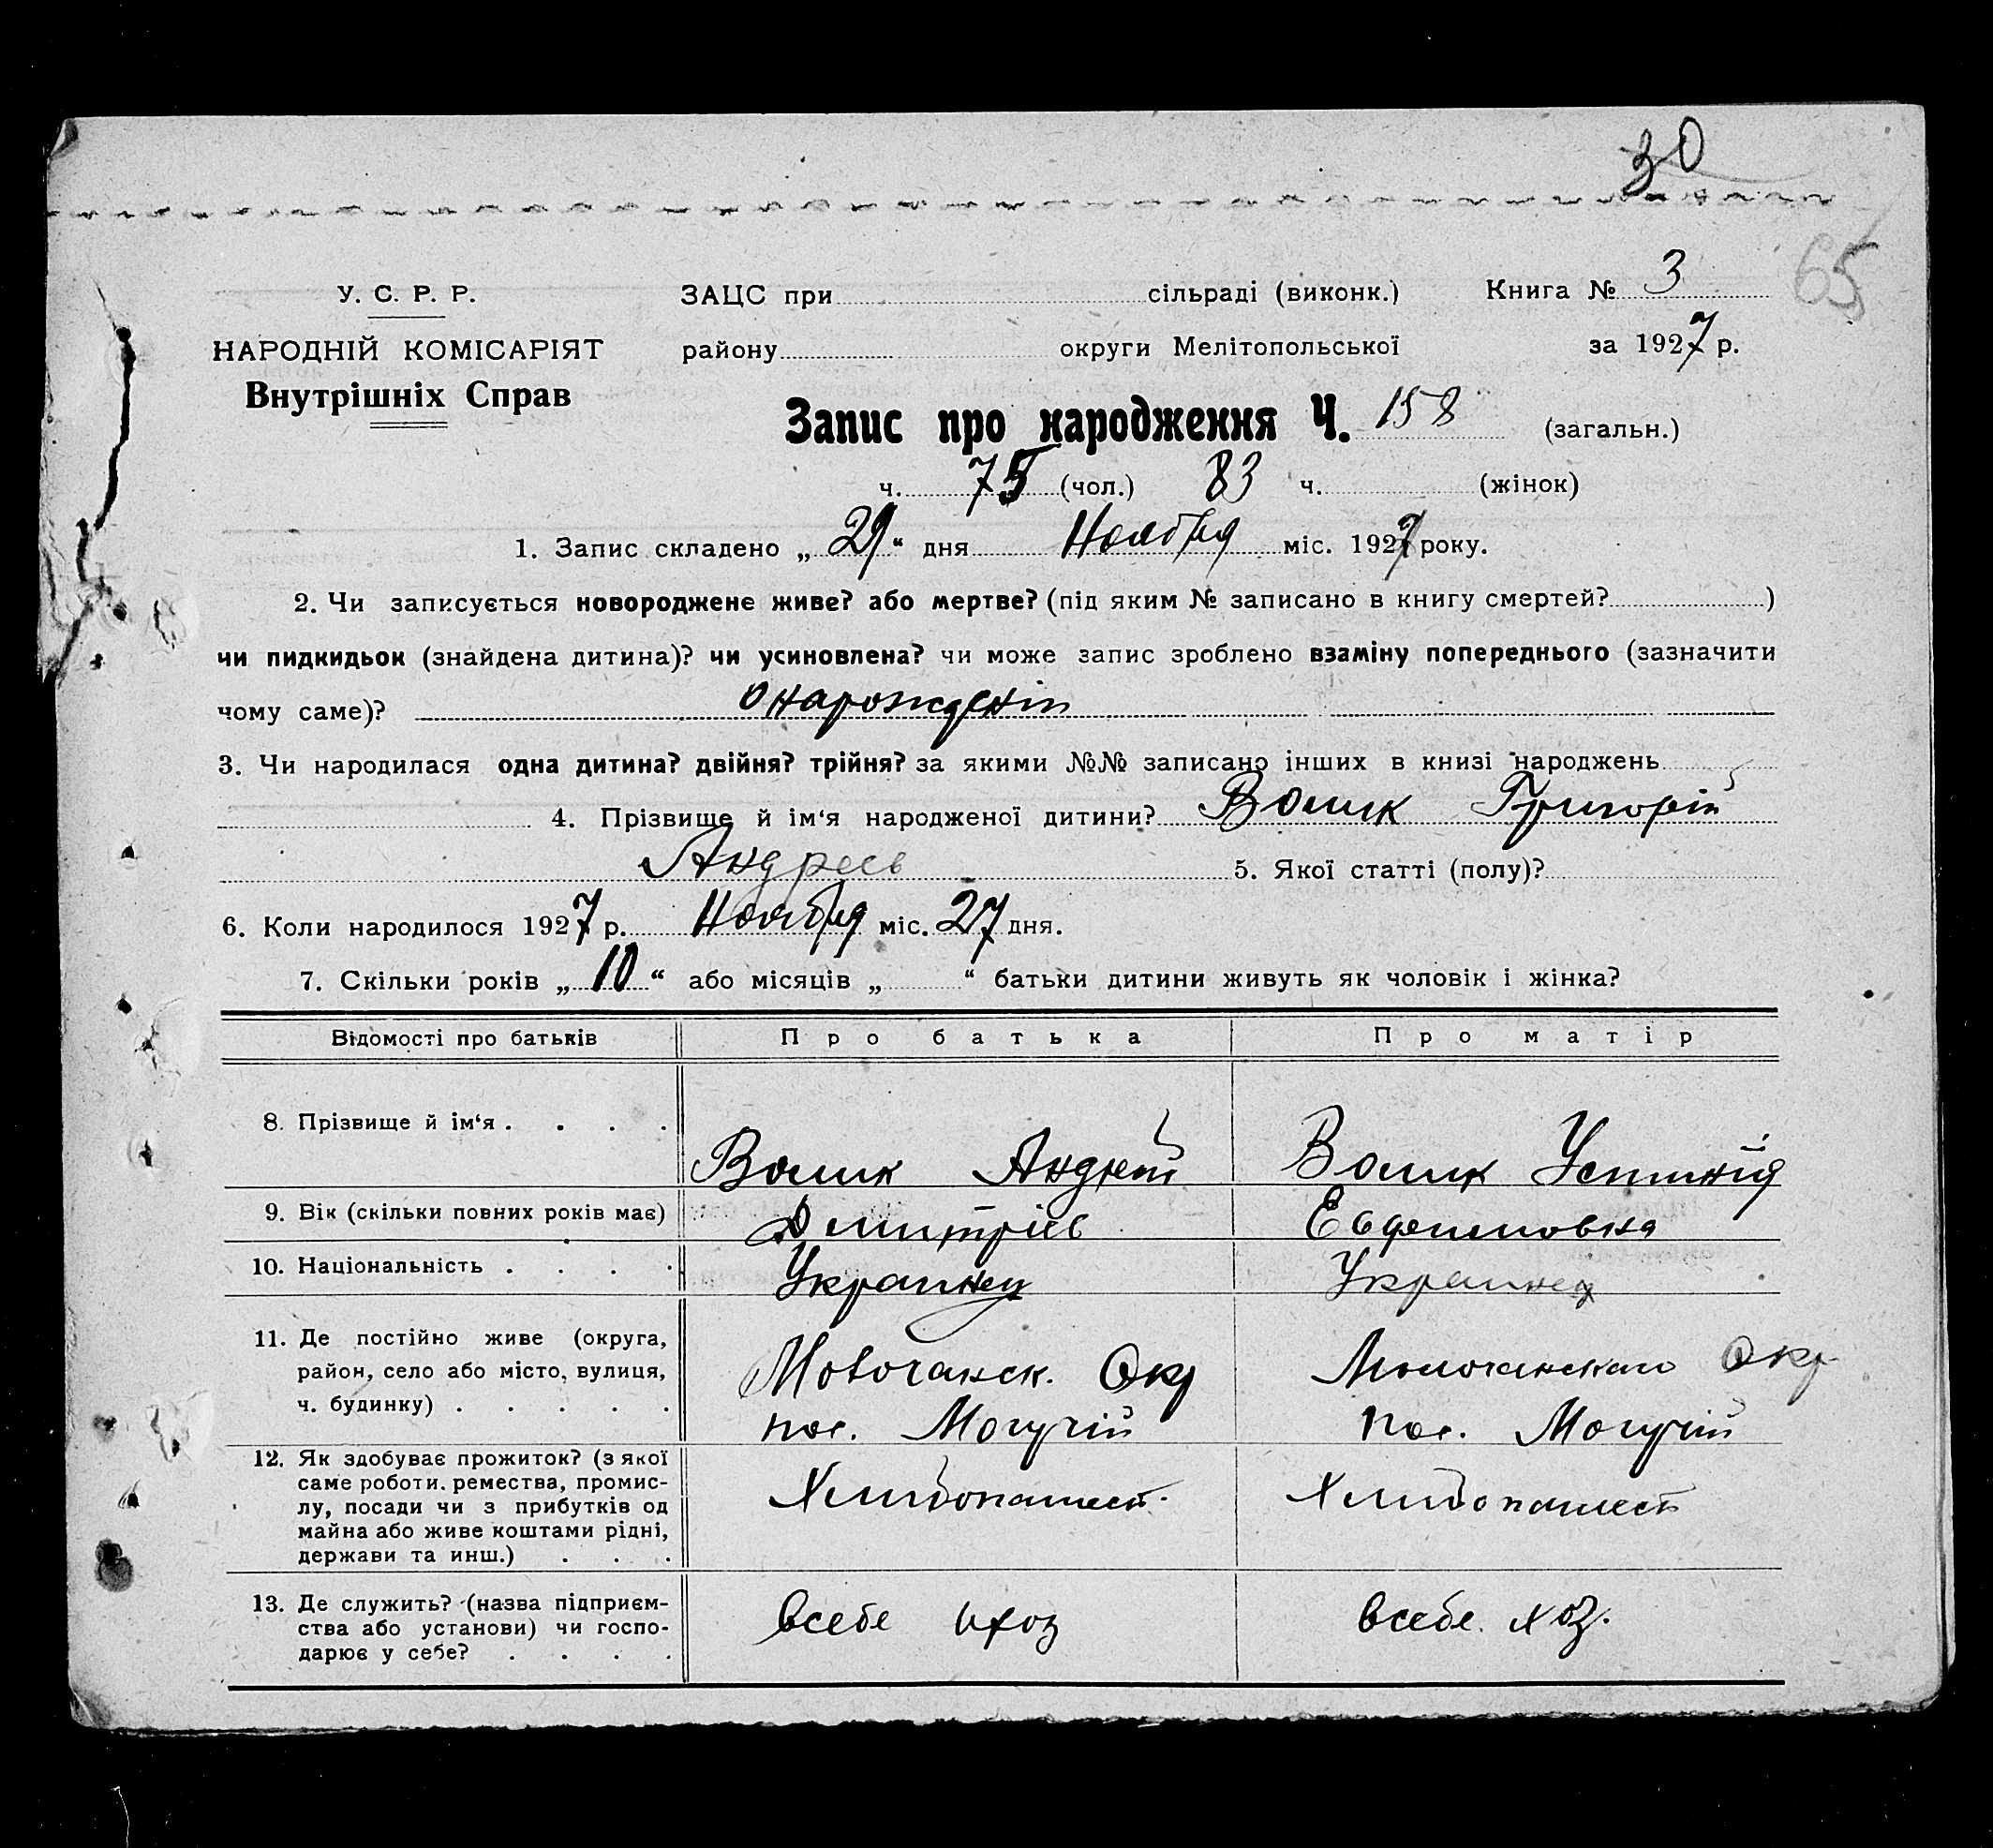 30
65
У. С. Р. Р. ЗАЦС при сільраді (виконк.) Книга № 3
НАРОДНІЙ КОМІСАРІЯТ району округи Мелітопольської за 1927 р.
Внутрішніх Справ
Запис про народження Ч. 158 (загальн.)
ч. 75 (чол.) 83 ч. (жінок)
1. Запис складено „ 29 “ дня Ноября міс. 1927 року.
2. Чи записується новороджене живе? або мертве? (під яким № записано в книгу смертей? )
чи пидкидьок (знайдена дитина)? чи усиновлена? чи може запис зроблено взаміну попереднього (зазначити
чому саме)? о нарожденіи
3. Чи народилася одна дитина? двійня? трійня? за якими №№ записано інших в книзі народжень
4. Прізвище й ім‘я народженої дитини? Волик Григорій
Андреев 5. Якої статті (полу)?
6. Коли народилося 1927 р. Ноября міс. 27 дня.
7. Скільки років „ 10 “ або місяців „ “ батьки дитини живуть як чоловік і жінка?
Відомості про батьків Про батька Про матір
8. Прізвище й ім‘я . . . . Волик Андрей Волик Устинія
9. Вік (скільки повних років має) Дмитріев Евфимовна
10. Національність . . . . Украинец Украинец
11. Де постійно живе (округа,
район, село або місто, вулиця, Молочанск. Окр Молочанскаго Окр
ч. будинку) . . . . . пос. Могучій пос. Могучій
12. Як здобуває прожиток? (з якої
саме роботи. ремества, промис- Хлибопашест. Хлибопашест
лу, посади чи з прибутків од
майна або живе коштами рідні,
держави та инш.) . . .
13. Де служить? (назва підприєм-
ства або установи) чи госпо- всебе хоз всебе. хоз.
дарює у себе? . . . .